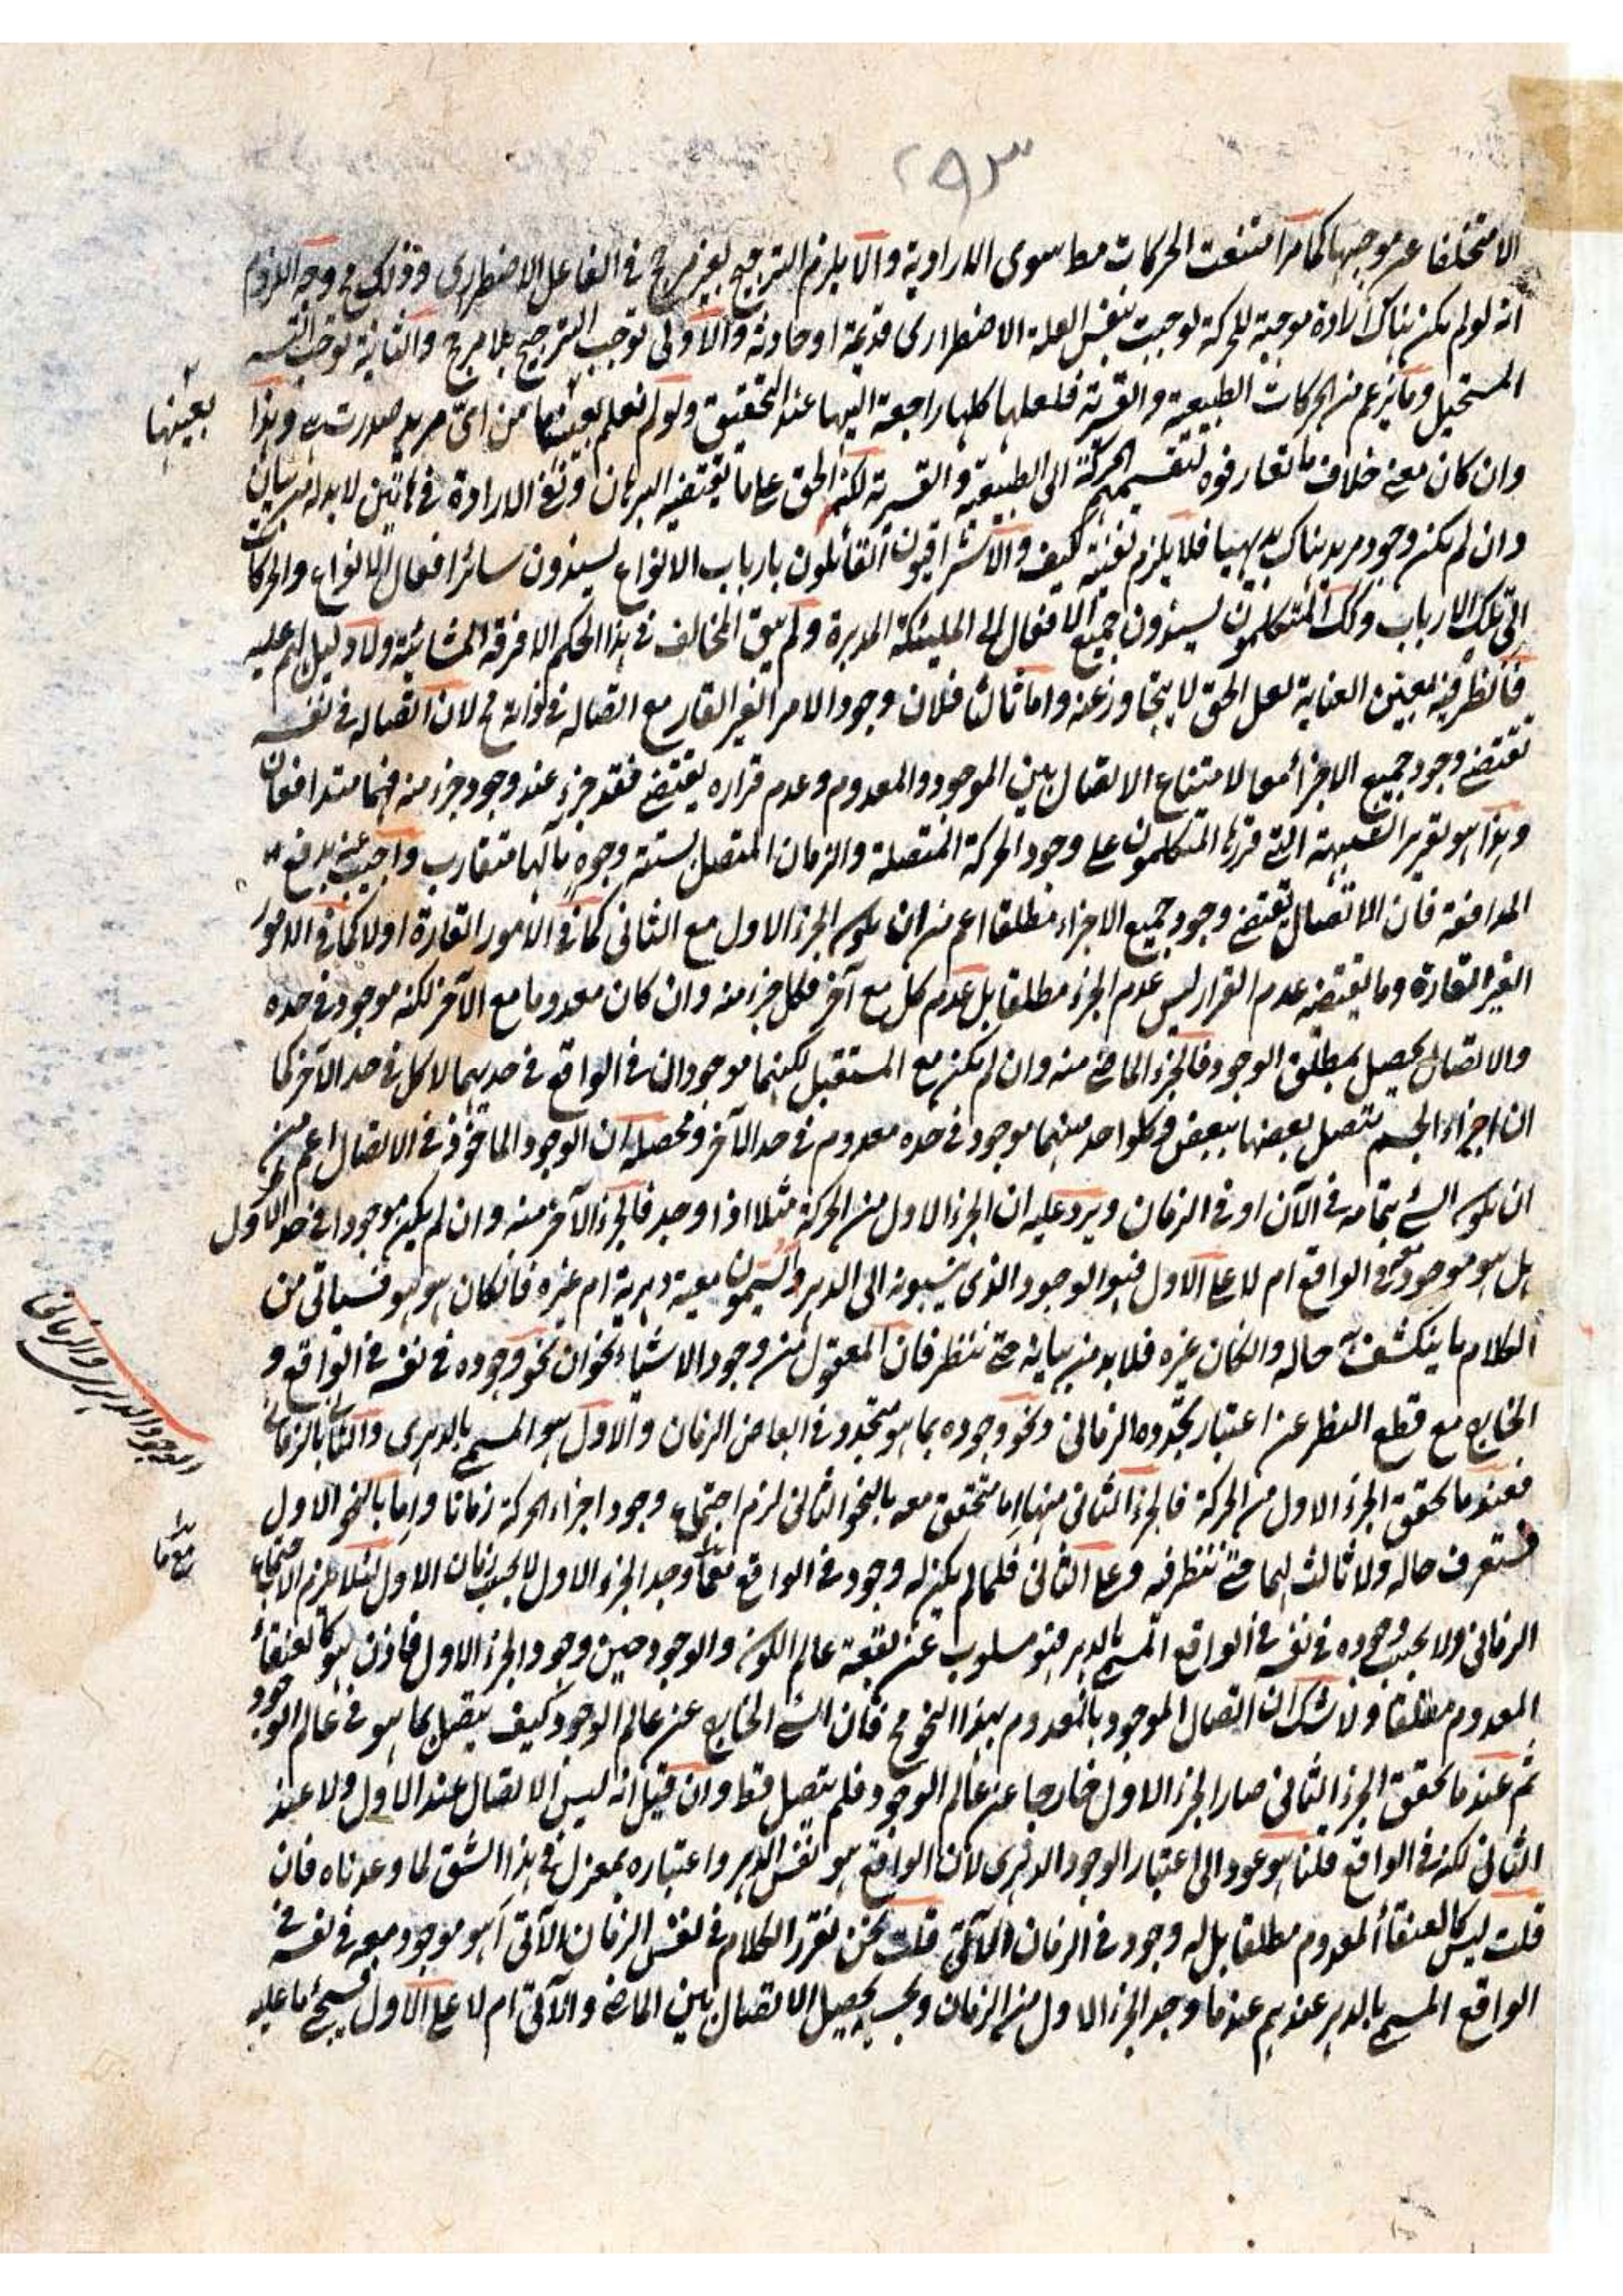 ٢٩٣
الا متخلفا عن موجبها كما مر امتنعت الحركات مطا سوى الارادية والا يلزم الترجيح بغير مرجح في الفاعل الاضطرارى وذلك مح وجه اللزوم
انه لو لم تكن هناك ارادة موجبة للحركة لوجبت بنفس العلة الاضطرارى قديمة او حادثة والاولى توجب الترجيح بلا مرجح والثانية توجب التسـ
المستحيل وما يزعم من الحركات الطبيعية والقسرية فلعلها كلها راجعة اليها عند التحقيق ولو لم نعلم بعينها من اى مريد صدرت وهذا
بعينها
وان كان معنى خلاف ما تعارفوه لتقسيمهم الحركة الى الطبيعية والقسرية لكن الحق على ما يقتضيه البرهان ونفى الارادة في هاتين لا بد له من بيان
وان لم تكن وجود مريد هناك بديهيا فلا يلزم نفيه كيف والاشراقيون القائلون بارباب الانواع يسندون سائر افعال الانواع والحركات
الى تلك الارباب وكك المتكلمون يسندون جميع الافعال الى المليئكة المدبرة ولم يبق المخالف في هذا الحكم الا فرقة المشائية ولا دليل لهم عليه
فانظر فيه بعين العناية لعل الحق لا يتجاوز عنه واما ثالثا فلان وجود الامر الغير القار مع اتصاله في ذاته مح لان اتصاله في نفسه
تقتضى وجود جميع الاجزاء معا لامتناع الاتصال بين الموجود والمعدوم وعدم قراره يقتضى فقد جزء عند وجود جزء منه فهما متدافعان
وهذا هو تقرير الشبهة التى قررها المتكلمون على وجود الحركة المتصلة والزمان المتصل بستة وجوه مآلها متقارب واجيب عنه بدفع
المدافعة فان الاتصال يقتضى وجود جميع الاجزاء مطلقا اعم من ان يكون الجزء الاول مع الثانى كما في الامور القارة اولا كما في الامور
الغير القارة وما يقتضيه عدم القرار ليس عدم الجزء مطلقا بل عدم كل مع آخر فكل جزء منه وان كان معدوما مع الآخر لكنه موجود في حده
والاتصال يحصل بمطلق الوجود فالجزء الماضى منه وان لم يكن مع المستقبل لكنهما موجودان في الواقع في حديهما لا كل في حد الآخر كما
ان اجزاء الجسم يتصل بعضها ببعض وكل واحد منهما موجود في حده معدوم في حد الآخر ومحصله ان الوجود الماخوذ في الاتصال اعم من
ان يكون الشئ بتمامه في الآن او في الزمان ويرد عليه ان الجزء الاول من الحركة مثلا اذا وجد فالجزء الآخر منه وان لم يكن موجودا في حد الاول
هل هو موجود معه في الواقع ام لا على الاول فهو الوجود الذى ينسبونه الى الدهر ويسمون معية دهرية ام غيره فان كان هو هو فسياتى من
الكلام ما ينكشف به حاله وان كان غيره فلا بد من بيانه حتى ننظر فان المعقول من وجود الاشياء نحوان نحو وجوده في نفسه في الواقع و
الخارج مع قطع النظر عن اعتبار تجدده الزمانى ونحو وجوده بما هو متجدد في ابعاض الزمان والاول هو المسمى بالدهرى والثانى بالزمانى
الوجود الدهرى والزمانى
فعند ما تحقق الجزء الاول من الحركة فالجزء الثانى منها اما متحقق معه بالنحو الثانى لزم اجتماع وجود اجزاء الحركة زمانا واما بالنحو الاول
فستعرف حاله ولا ثالث لهما حتى ننظر فيه وعلى الثانى فلما لم يكن له وجود في الواقع عند ما وجد الجزء الاول لا بحسب زمان الاول لئلا يلزم الاجتماع
الزمانى ولا بحسب وجوده في نفسه في الواقع المسمى بالدهر فهو مسلوب عن بقعة عالم الكون والوجود حين وجود الجزء الاول فاذن هو كالعنقاء
المعدوم مطلقا ولا شك ان اتصال الموجود بالمعدوم بهذا النحو مح فان الشئ الخارج عن عالم الوجود كيف يتصل بما هو في عالم الوجود
ثم عند ما تحقق الجزء الثانى صار الجزء الاول خارجا عن عالم الوجود فلم يتصل قط وان قيل انه ليس الاتصال عند الاول ولا عند
الثانى لكنه في الواقع قلنا هو عود الى اعتبار الوجود الدهرى لان الواقع هو نفس الدهر واعتباره بمعزل في هذا الشق لما وعدناه فان
قلت ليس كالعنقاء المعدوم مطلقا بل له وجود في الزمان الآتى قلت نحن نقرر الكلام في نفس الزمان الآتى اهو موجود معه في نفسه في
الواقع المسمى بالدهر عندهم عند ما وجد الجزء الاول من الزمان وبحسبه يحصل الاتصال بين الماضى والآتى ام لا على الاول فسيجئ ما عليه